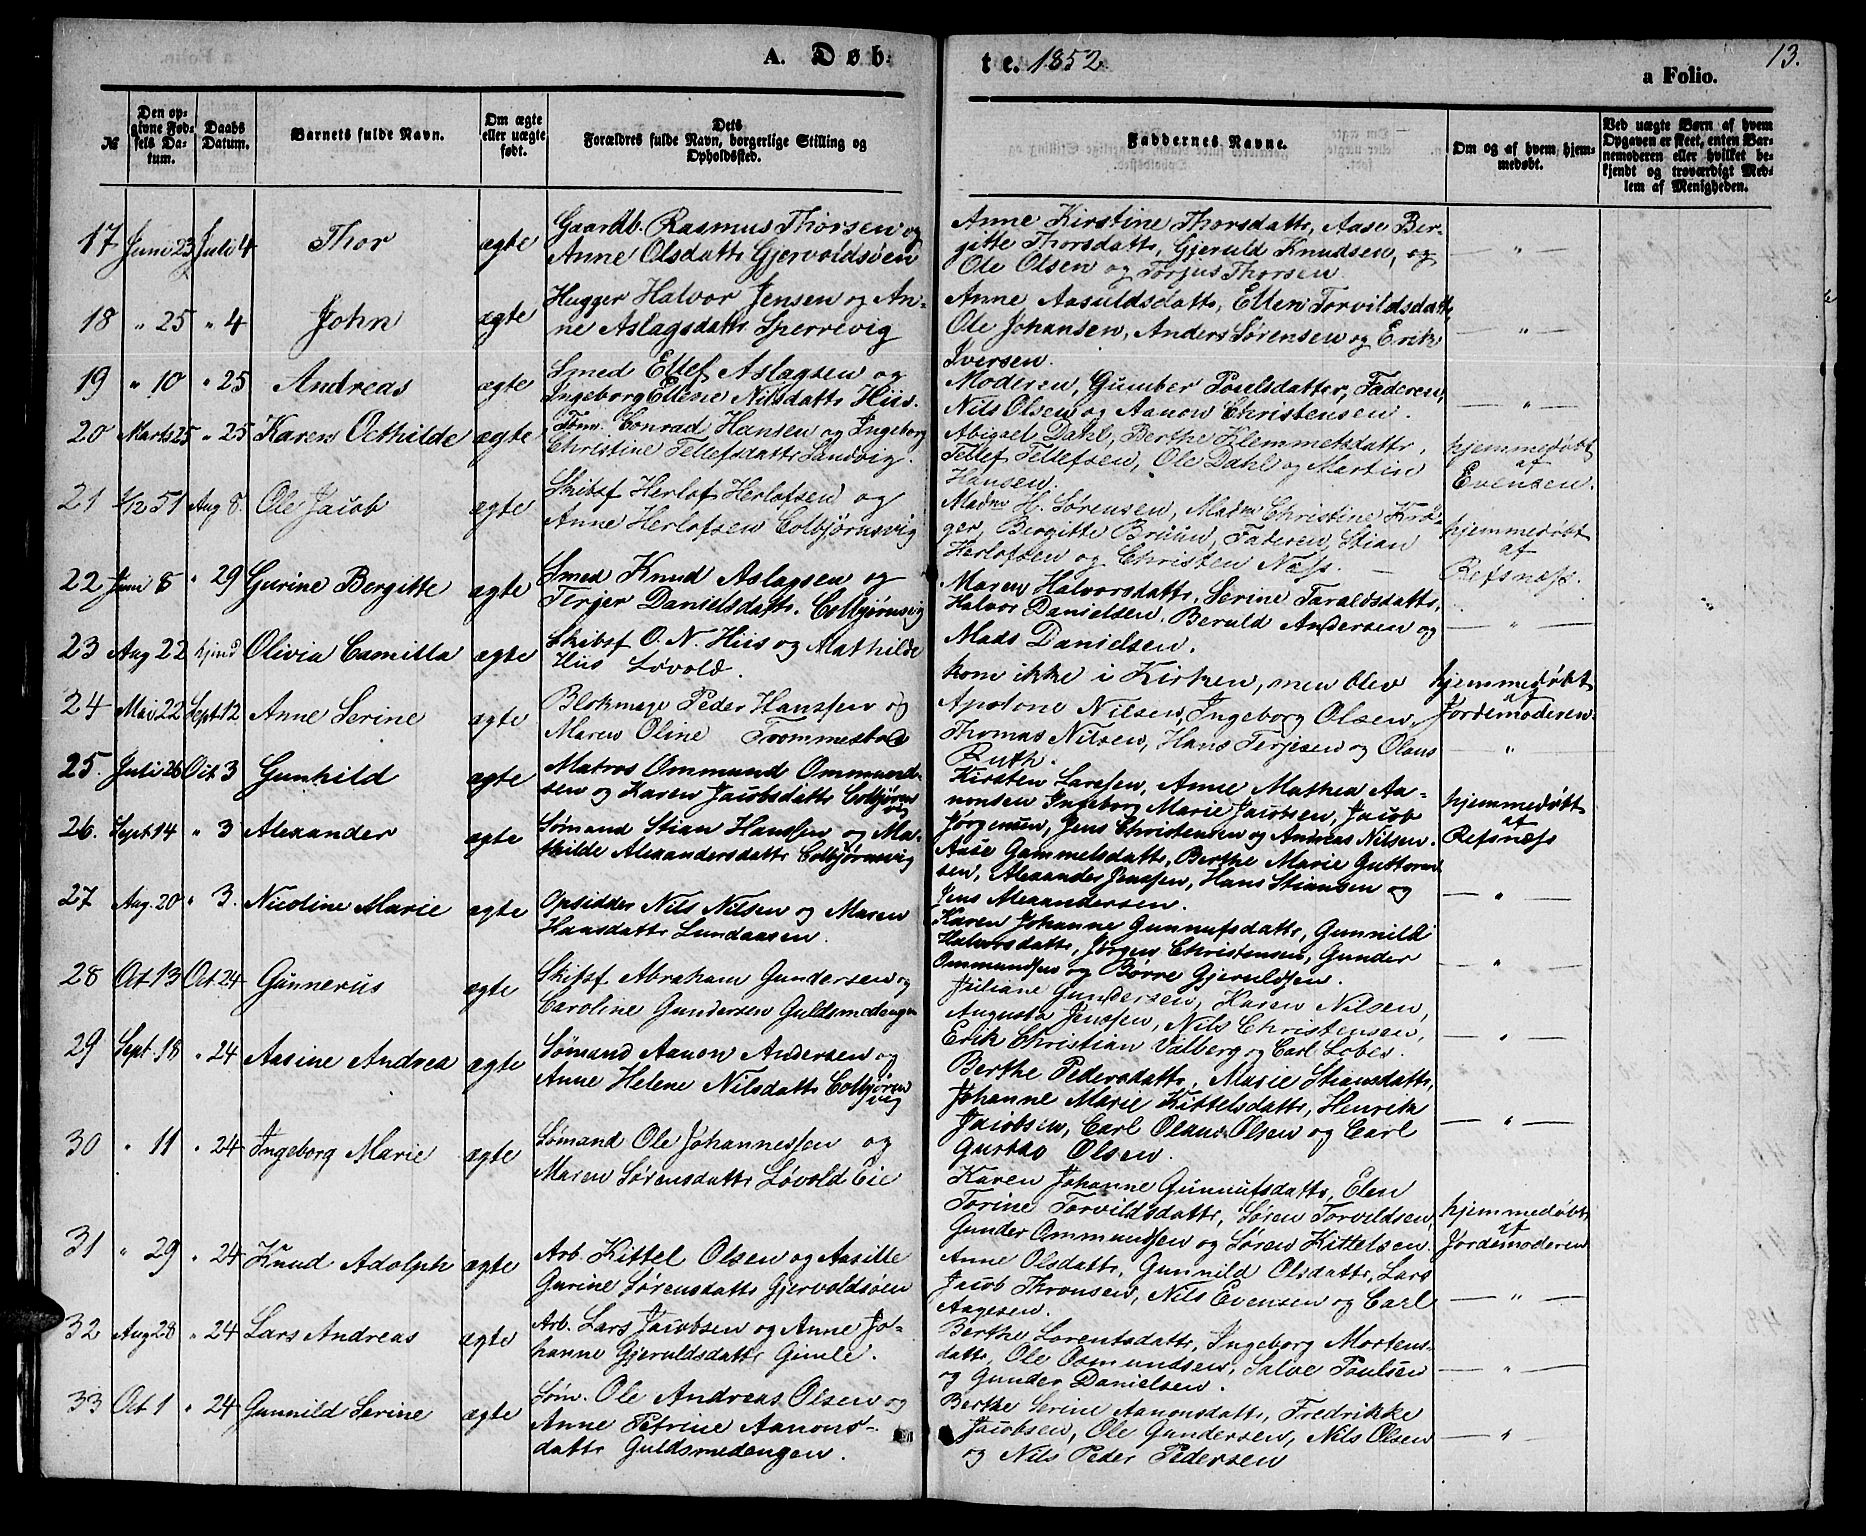 A. Døb-
te. 1852
13.
a Folio.
№
Den op-
givne Fød-
sels Da-
tum.
Daabs
Datum.
Barnets fulde Navn.
Om ægte
eller uægte
født.
Dets
Forældres fulde Navn, borgerlige Stilling og
Opholdssted.
Faddernes Navne.
Om og af hvem hjem-
medøbt.
Ved uægte Børn af hvem
Opgaven er skeet, enten Bar-
nemoderen eller hvilket be-
kjendt og troværdigt Med-
lem af Menigheden.
17 Juni 23 Juli 4 Thor ægte
Gaardb. Rasmus Thorsen og
Anne Olsdattr Gjervoldsøen
Anne Kirstine Thorsdattr, Aase Ber-
gitte Thorsdattr, Gjeruld Knudsen, og
Ole Olsen og Torjus Thorsen
— " —
18 " 25 " 4 John ægte
Hugger Halvor Jensen og An-
ne Aslagsdattr Sperrevig
Anne Aasuldsdattr, Ellen Torvildsdattr,
Ole Johansen, Anders Sørensen og Erik
Iversen.
— " —
19 " 10 " 25 Andreas ægte
Smed Ellef Aslagsen og
Ingeborg Ellene Nilsdattr Hiis.
Moderen, Gumber Poulsdatter, Faderen,
Nils Olsen og Aanon Christensen.
— " —
20 Marts 25 " 25 Karen Octhilde ægte
Tøm. Conrad Hansen og Ingeborg
Christine Tellefsdattr Sandvig.
Abigael Dahl, Berthe Klemmetsdattr,
Tellef Tellefsen, Ole Dahl og Martin
Hansen.
hjemmedøbt
af
Evensen.
21 5/12 51 Aug 8. Ole Jacob ægte
Skibsf Herlof Herlofsen og
Anne Herlofsen Colbjørnsvig
Madm H. Sørensen, Madm Christine Krø-
ger, Bergitte Bruun, Faderen, Stian
Herlofsen og Christen Næss. —
hjemmedøbt
af
Refsnæss.
22 Juni 8 " 29 Gurine Bergitte ægte
Smed Knud Aslagsen og
Terjer Danielsdattr. Colbjørnsvig
Maren Halvorsdattr, Serine Taraldsdattr,
Halvor Danielsen, Beruld Andersen og
Mads Danielsen.
— " —
23 Aug 22 hjmd Olivia Camilla ægte
Skibsf O. N. Hiis og Mathilde
Hiis Løvold.
kom ikke i Kirken, men blev
hjemmedøbt
af
Jordemoderen.
24 Mai 22 Sept 12 Anne Serine ægte
Blokmager Peder Hanssen og
Maren Oline Trommestad
Apolone Nilsen, Ingeborg Olsen,
Thomas Nilsen, Hans Terjesen og Olaus
Ruth.
— " —
25. Juli 26 Oct 3 Gunhild ægte
Matros Ommund Ommund-
sen og Karen Jacobsdattr Colbjørns
vig
Kirsten Larssen, Anne Mathea Aa-
nonsen Ingeborg Marie Jacobsen, Jacob
Jørgensen, Jens Christensen og Andreas Nilsen.
hjemmedøbt
af
Refsnæss
26. Sept 14 " 3 Alexander ægte
Sømand Stian Hanssen og Ma-
thilde Alexandersdattr Colbjørnsvig
Aase Gammelsdattr, Berthe Marie Guttorm-
sen, Alexander Jenssen, Hans Stiansen og
Jens Alexandersen.
— " —
27 Aug. 20 " 3. Nicoline Marie ægte
Opsidder Nils Nilsen og Maren
Hansdattr Lundaasen.
Karen Johanne Gunnufsdattr, Gunnild
Halvorsdattr, Jørgen Christensen, Gunder
Ommundsen og Børre Gjeruldsen.
— " —
28 Oct 13 Oct. 24 Gunnerus ægte
Skibsf Abraham Gundersen og
Caroline Gundersen Guldsmedengen
Juliane Gundersen, Karen Nilsen,
Augusta Jenssen, Nils Christensen,
Erik Christian Valberg og Carl Lobes.
— " —
29 Sept. 18 " 24 Aasine Andrea ægte
Sømand Aanon Andersen og
Anne Helene Nilsdattr Colbjørns
vig
Berthe Pedersdattr, Marie Stiansdattr,
Johanne Marie Kittelsdattr, Henrik
Jacobsen, Carl Olaus Olsen og Carl
Gustav Olsen.
— " —
30 " 11 " 24 Ingeborg Marie ægte
Sømand Ole Johannessen og
Maren Sørensdattr Løvold Eie
Karen Johanne Gunnufsdattr, Elen
Torine Torvildsdattr, Søren Torvildsen,
Gunder Ommundsen og Søren Kittelsen.
hjemmedøbt
af
Jordemoderen
31 " 29 " 24 Knud Adolph ægte
Arb. Kittel Olsen og Aasille
Gurine Sørensdattr Gjervoldsøen
Anne Olsdattr, Gunnild Olsdattr, Lars
Jacob Thronsen, Nils Evensen og Carl
Aagesen.
— " —
32 Aug 28 " 24 Lars Andreas ægte
Arb. Lars Jacobsen og Anne Jo-
hanne Gjeruldsdattr Gimle.
Berthe Lorentsdattr, Ingeborg Mortens-
dattr, Ole Osmundsen, Salve Poulsen
og Gunder Danielsen.
— " —
33 Oct 1 " 24 Gunnild Serine ægte
Søm. Ole Andreas Olsen og
Anne Petrine Aanons-
dattr Guldsmedengen.
Berthe Serine Aanonsdattr, Fredrikke
Jacobsen, Ole Gundersen, Nils Olsen
og Nils Peder Pedersen
— " —